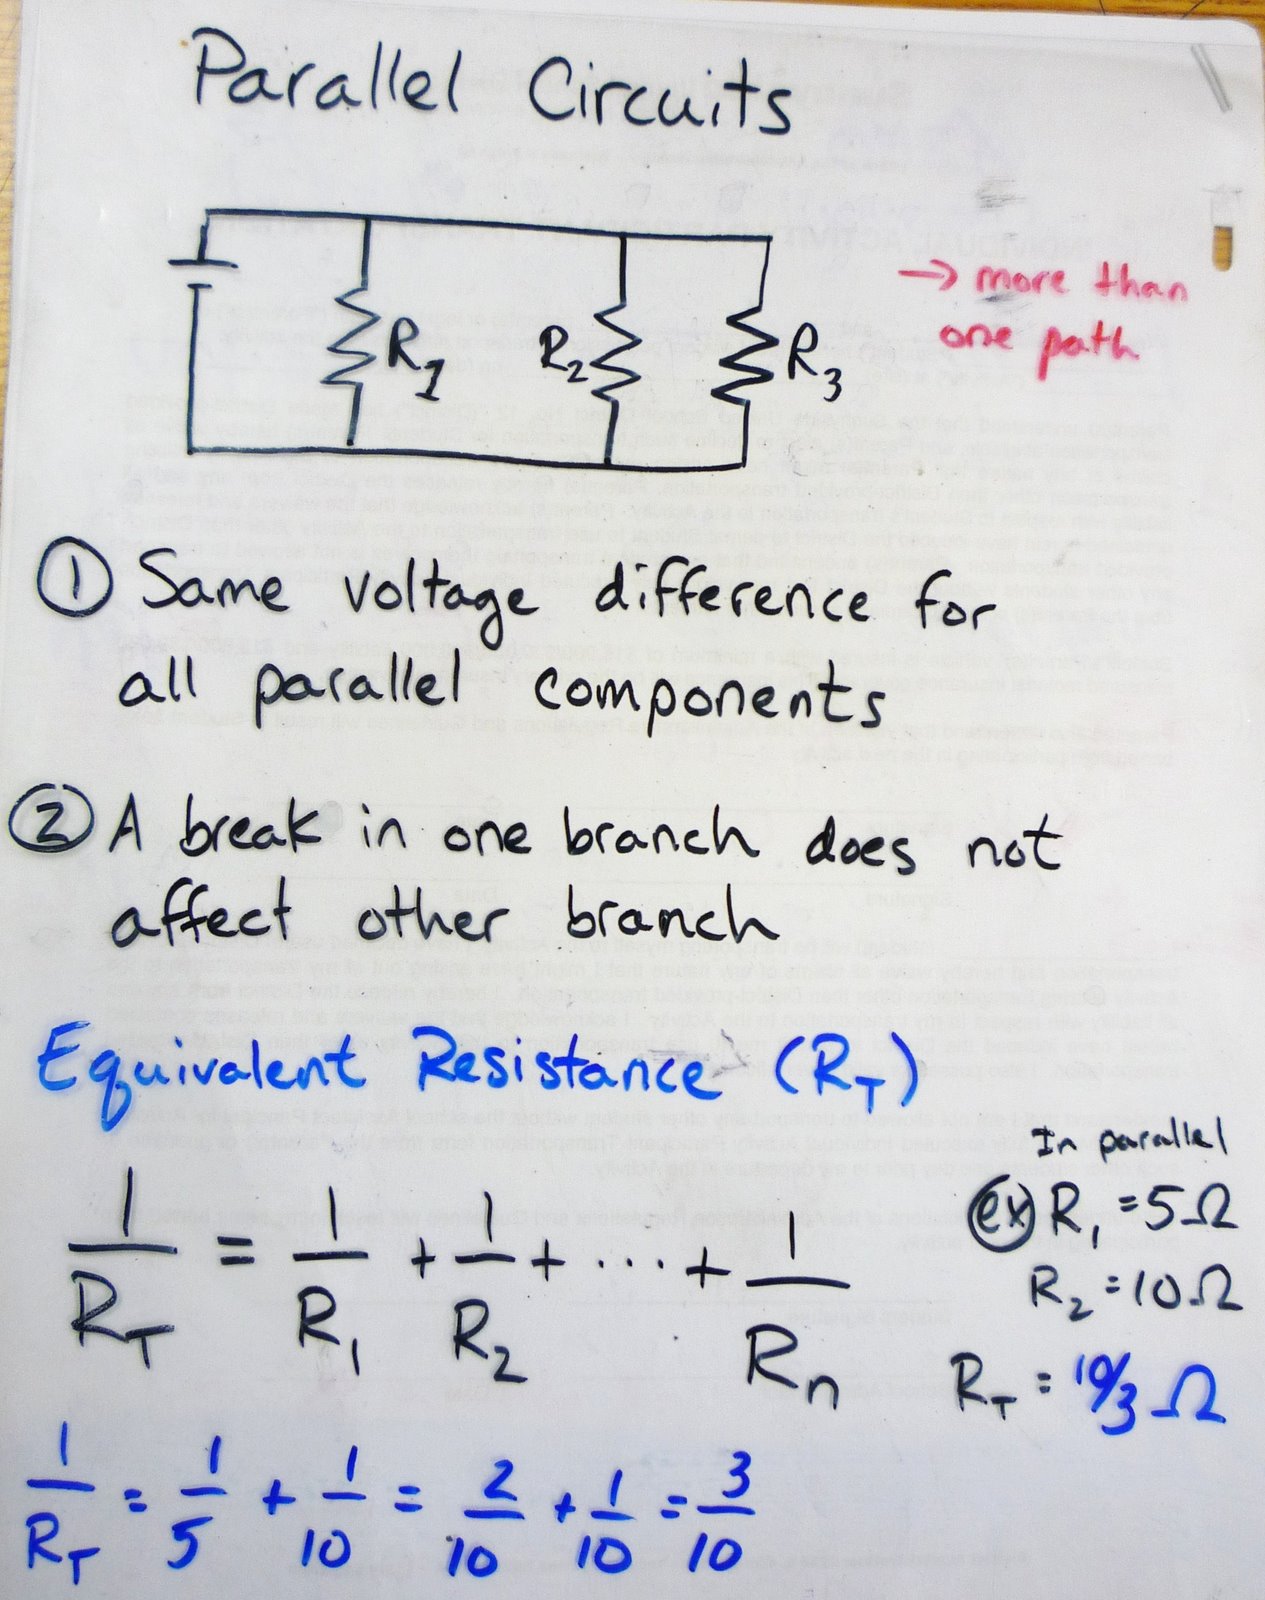 Parallel Circuits
R1
R2
R3
→ more than
one path
① Same voltage difference for
all parallel components
② A break in one branch does not
affect other branch
Equivalent Resistance (RT)
1/RT = 1/R1 + 1/R2 + ... + 1/Rn
In parallel
ex R1 = 5Ω
R2 = 10Ω
RT = 10/3 Ω
1/RT = 1/5 + 1/10 = 2/10 + 1/10 = 3/10